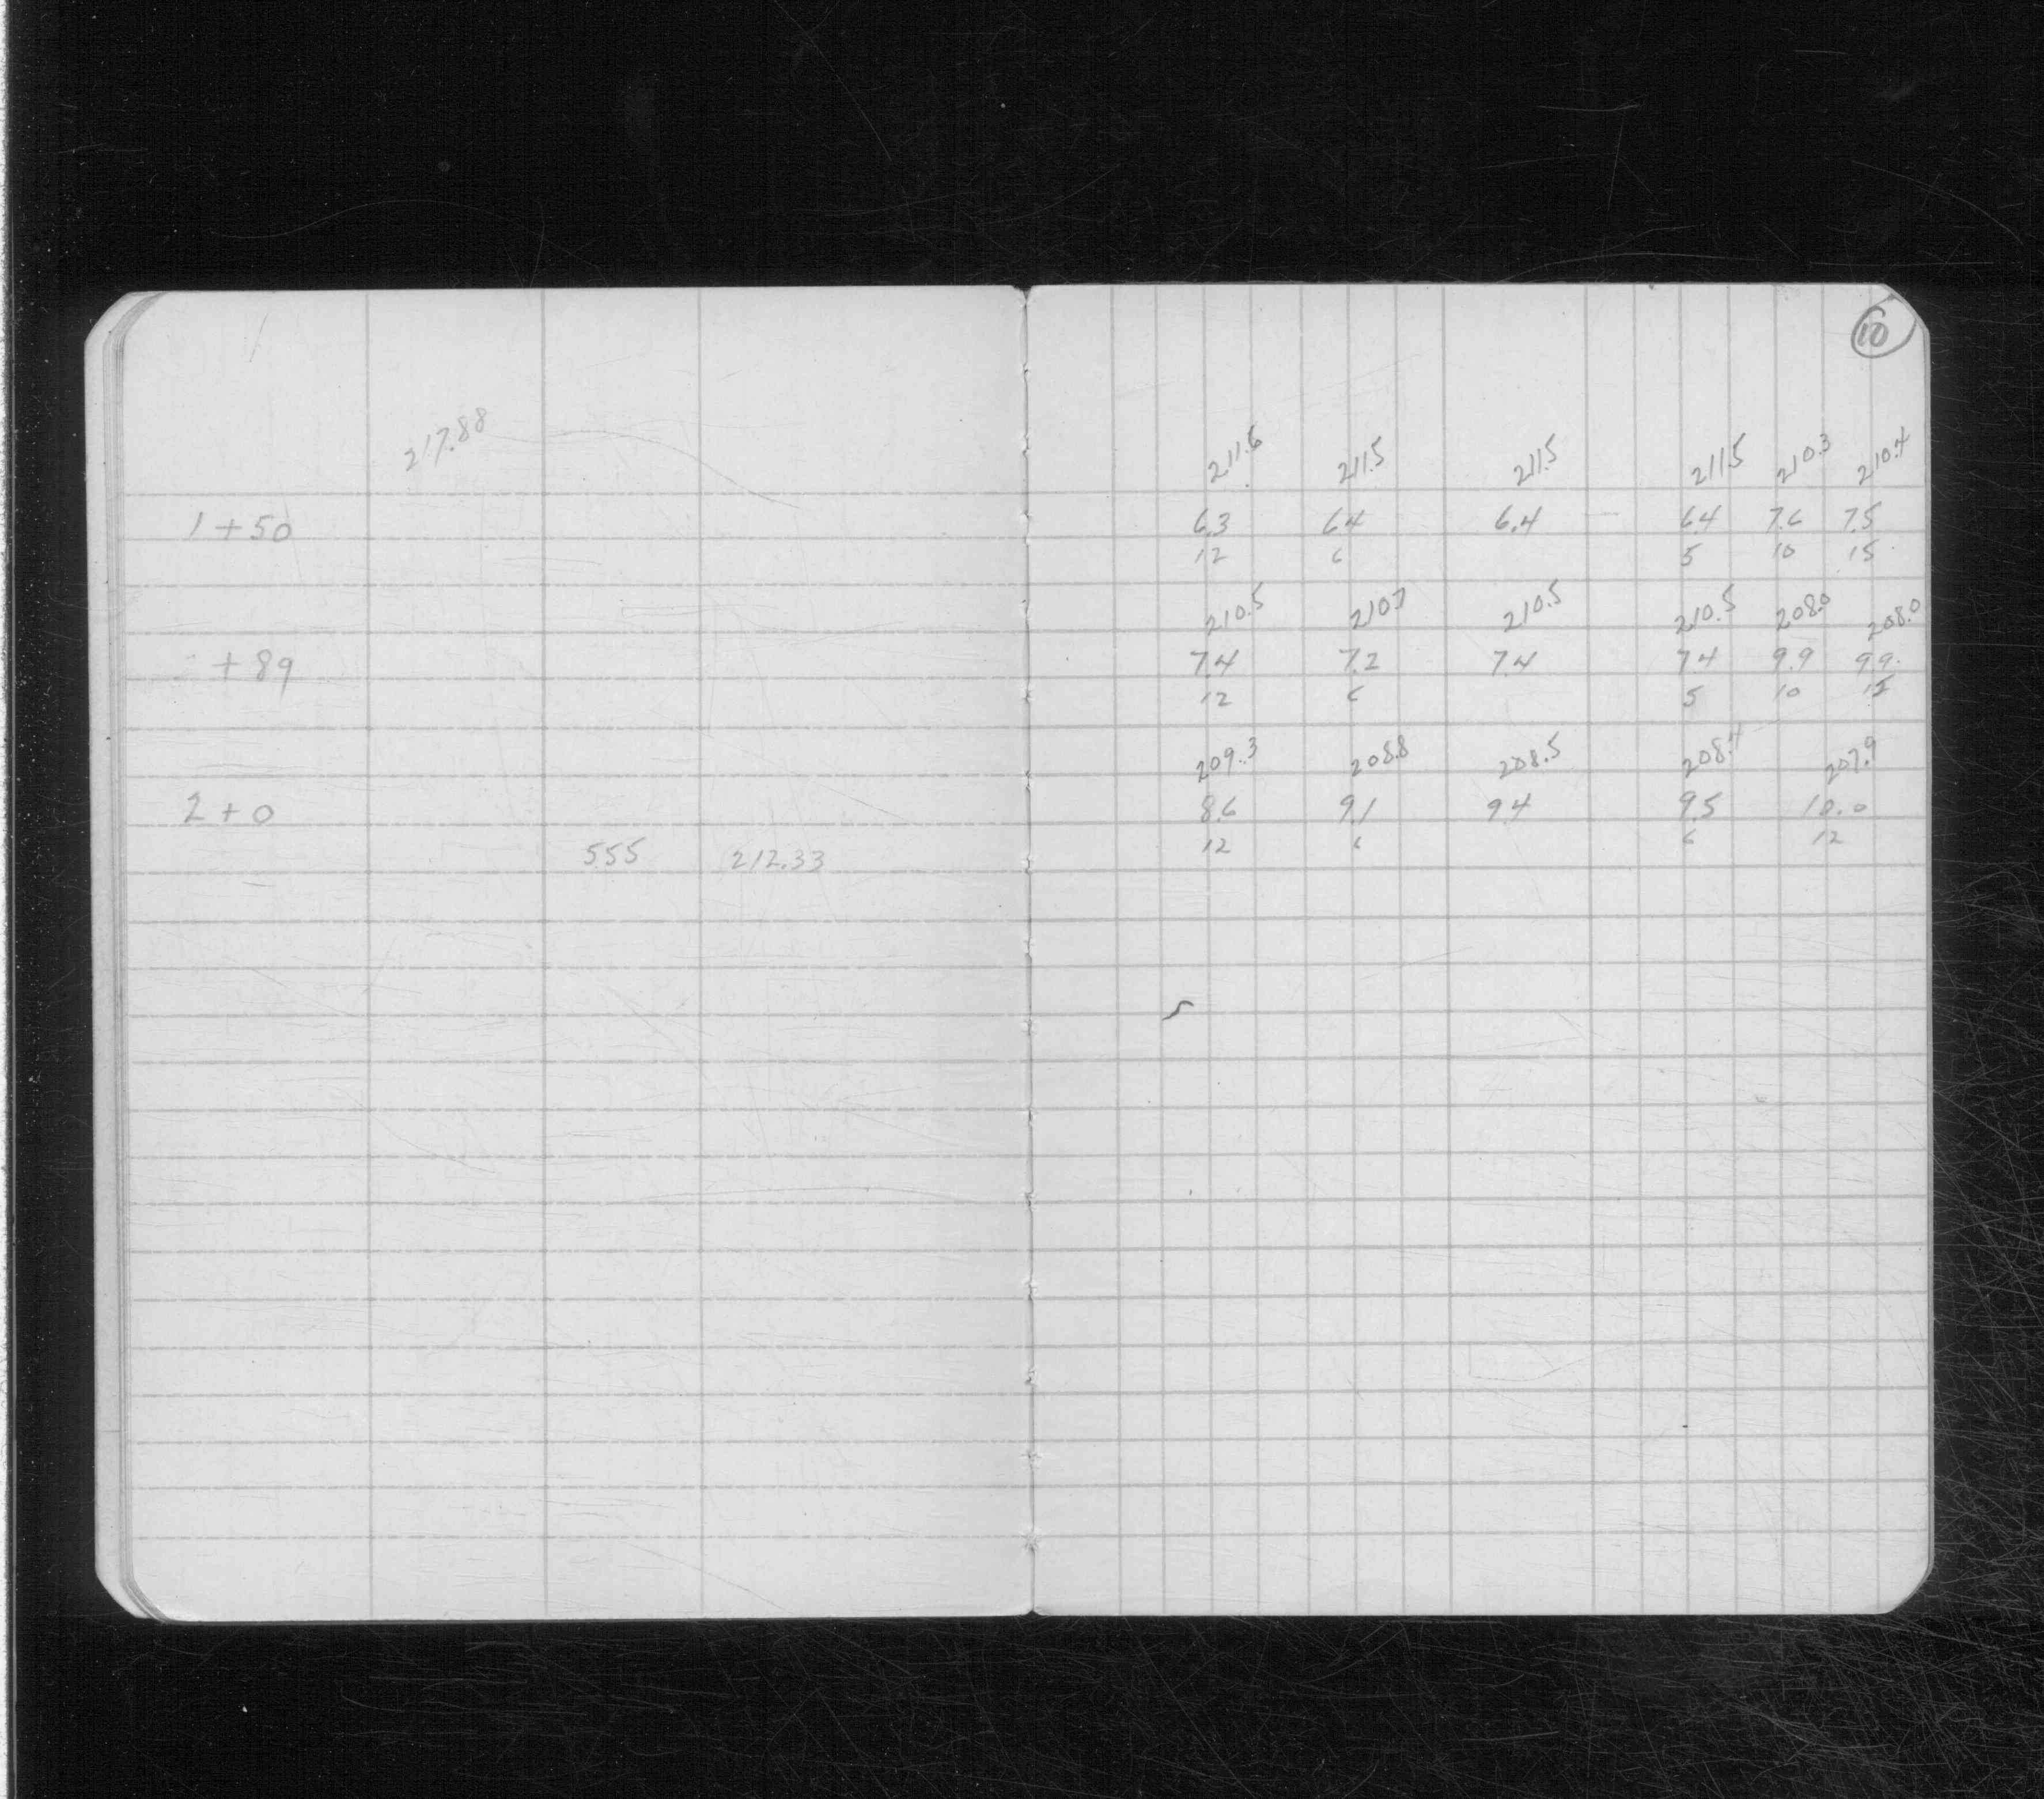 10
217.88 211.6 211.5 211.5 211.5 210.3 210.4
1+50 6.3 6.4 6.4 6.4 7.6 7.5
12 6 5 10 15
210.5 210.7 210.5 210.5 208.0 208.0
+89 7.4 7.2 7.4 7.4 9.9 9.9
12 6 5 10 15
209.3 208.8 208.5 208.4 207.9
2+0 8.6 9.1 9.4 9.5 10.0
5.55 212.33 12 6 6 12